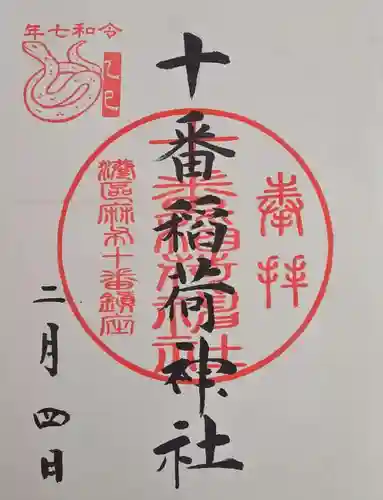 令和七年
乙巳
奉拝
十番稲荷神社
十番稲荷神社
港區麻布十番鎮座
二月四日